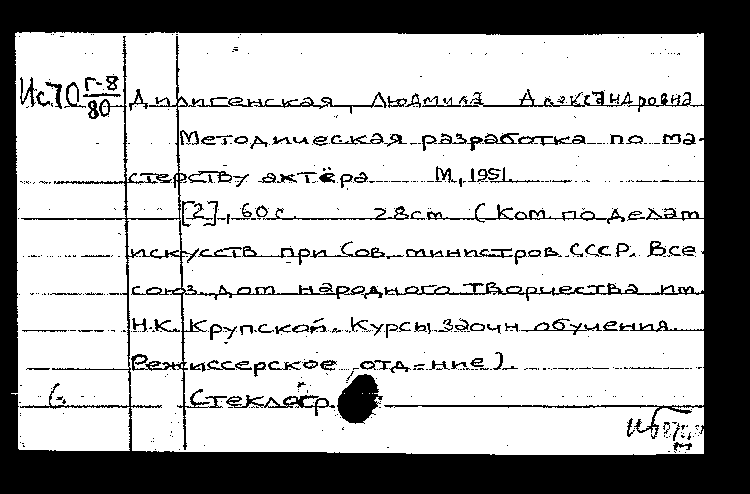 Ис70 Г-8/80 Дилигенская, Людмила Александровна
Методическая разработка по ма-
стерству актёра М, 1951.
[2], 60 с. 28 см (Ком. по делам
искусств при Сов. министров СССР. Все-
союз. дом народного творчества им.
Н.К. Крупской. Курсы заочн обучения.
Режиссерское отд-ние).
Стеклогр.